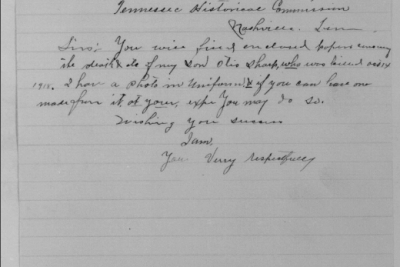 Tennessee Historical Commission
Nashville, Tenn
Sirs: You will find enclosed papers
the death & do of my son Otis Sharp, who was killed Oct
1918. I hav a photo in Uniform & if you can have one
made from it at your exp. You may do so.
Wishing you success
I am
You Verry respectfully